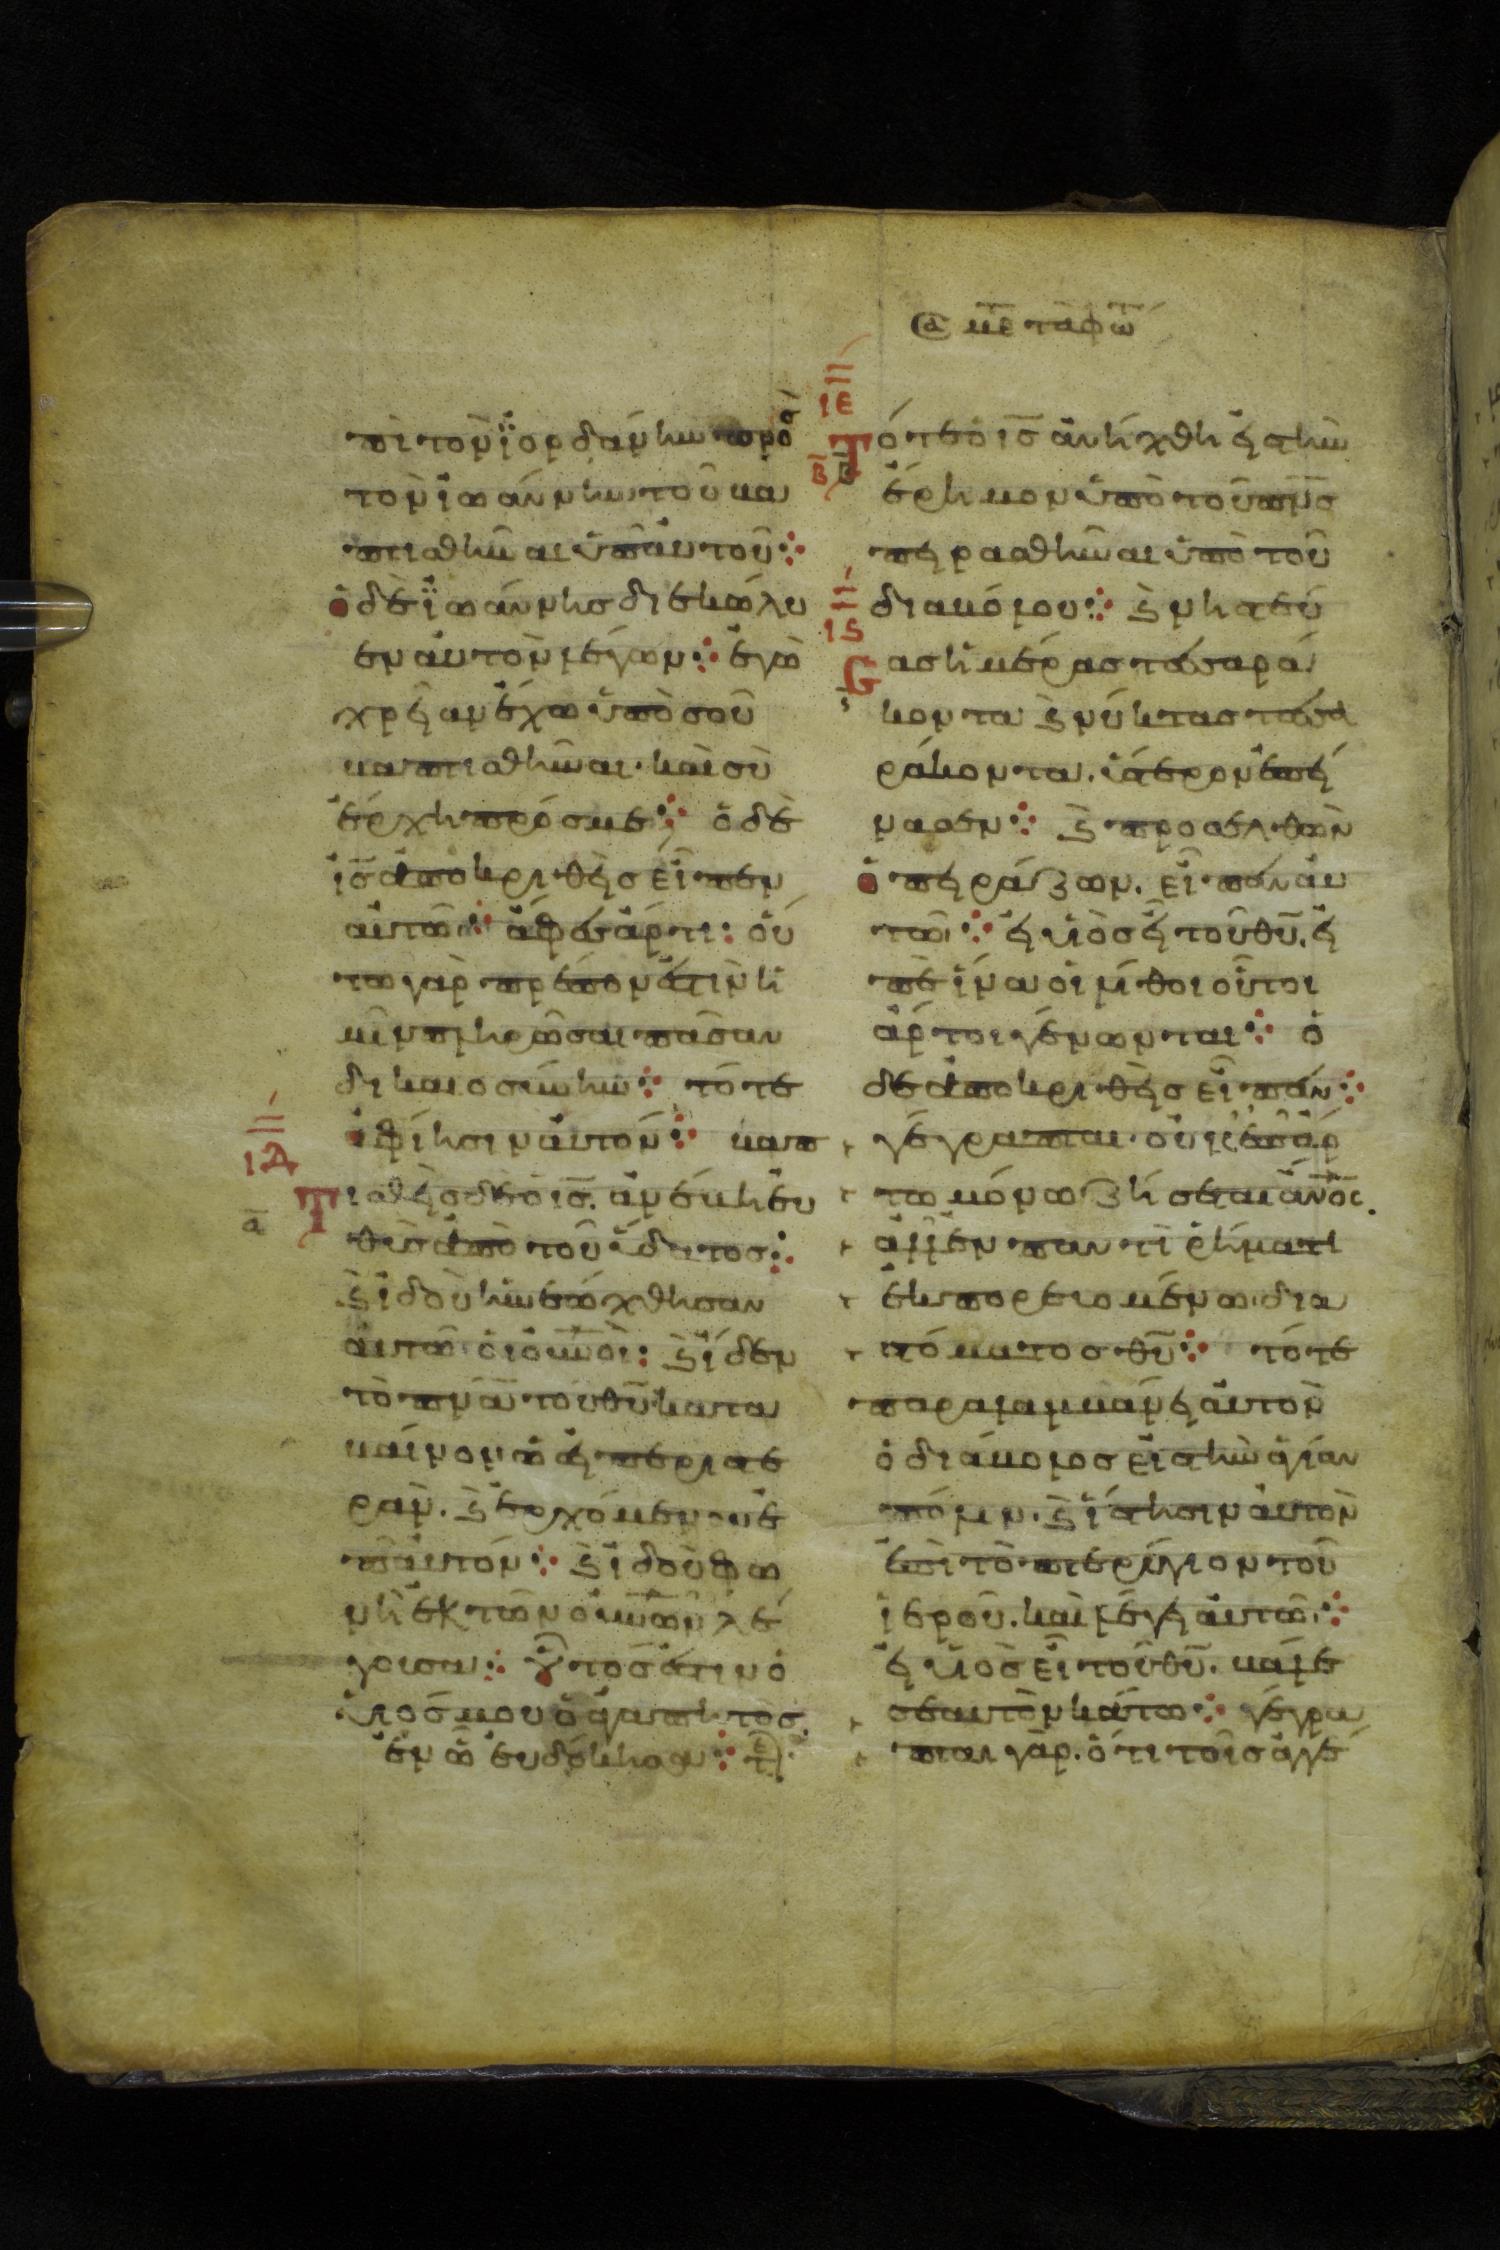 Σα μετ τα φω
πι τὸν ϊορδάνην πρὸσ
τὸν ϊωάννην τοῦ βα
πτισθῆναι ὑπ αὐτοῦ
ὁ δὲ ϊωάννησ διεκώλυ
εν αὐτὸν λέγων ἐγὼ
χρείαν ἔχω ὑπὸ σοῦ
βαπτισθῆναι· καὶ σὺ
ἔρχη πρόσ με ὁ δὲ
ισ ἀποκριθεὶσ εἶπεν
αὐτῶ ἄφεσ ἄρτι οὕ
τω γὰρ πρέπον ἐστὶν ἡ
μῖν πληρῶσαι πᾶσαν
δικαιοσύνην τότε
ἀφίησιν αὐτόν βαπ
τισθεὶσ δὲ ὁ ισ. ἀνέβη εὐ
θὺσ ἀπὸ τοῦ ὕδατοσ
ϗ ἰδοὺ ἠνεώχθησαν
αὐτῶ οἱ οὐνοὶ ϗ ἴδεν
τὸ πνα τοῦ θυ κατα
βαῖνον ὡσεὶ περιστε
ράν. ϗ ἐρχόμενον ἐ
π αὐτόν ϗ ἰδοὺ φω
νὴ ἐκ τῶν οὐνῶν λέ
γουσα οὗτοσ ἐστιν ὁ
υἱόσ μου ὁ ἀγαπητὸσ
ἐν ὧ ἐυδόκησα τε
ΙΔ
α
ΙΕ
Β Β
τότε ὁ ισ ἀνήχθη εἰσ τὴν
ἔρημον ὑπὸ τοῦ πνσ
πειρασθῆναι ὑπὸ τοῦ
διαβόλου ϗ νηστεύ
Ιϛ
σασ ἡμέρασ τεσσαρά
κοντα ϗ νύκτασ τεσσα
ράκοντα. ὕστερον ἐπεί
νασεν ϗ προσελθὼν
ὁ πειράζων. εἶπεν αὐ
τῶ εἰ υἱὸσ εἶ τοῦ θυ. εἰ
πὲ ἵνα οἱ λίθοι οὗτοι
ἄρτοι γένωνται ὁ
δὲ ἀποκριθεὶσ εἶπεν
γέγραπται· οὐκ ἐπ ἄρ
τω μόνω ζήσεται ἄνοσ.
ἀλλ ἐν παντὶ ῥήματι
ἐκπορευομένω δια
στόματοσ θυ τότε
παραλαμβάνει αὐτὸν
ὁ διάβολοσ εἰσ τὴν ἁγίαν
πόλιν. ϗ ἵστησιν αὐτὸν
ἐπὶ τὸ πτερύγιον τοῦ
ἱεροῦ. καὶ λέγει αὐτῶ
εἰ υἱὸσ εἶ τοῦ θυ. βάλε
σεαυτὸν κάτω γέγρα
πται γὰρ. ὅτι τοῖσ ἀγγέ